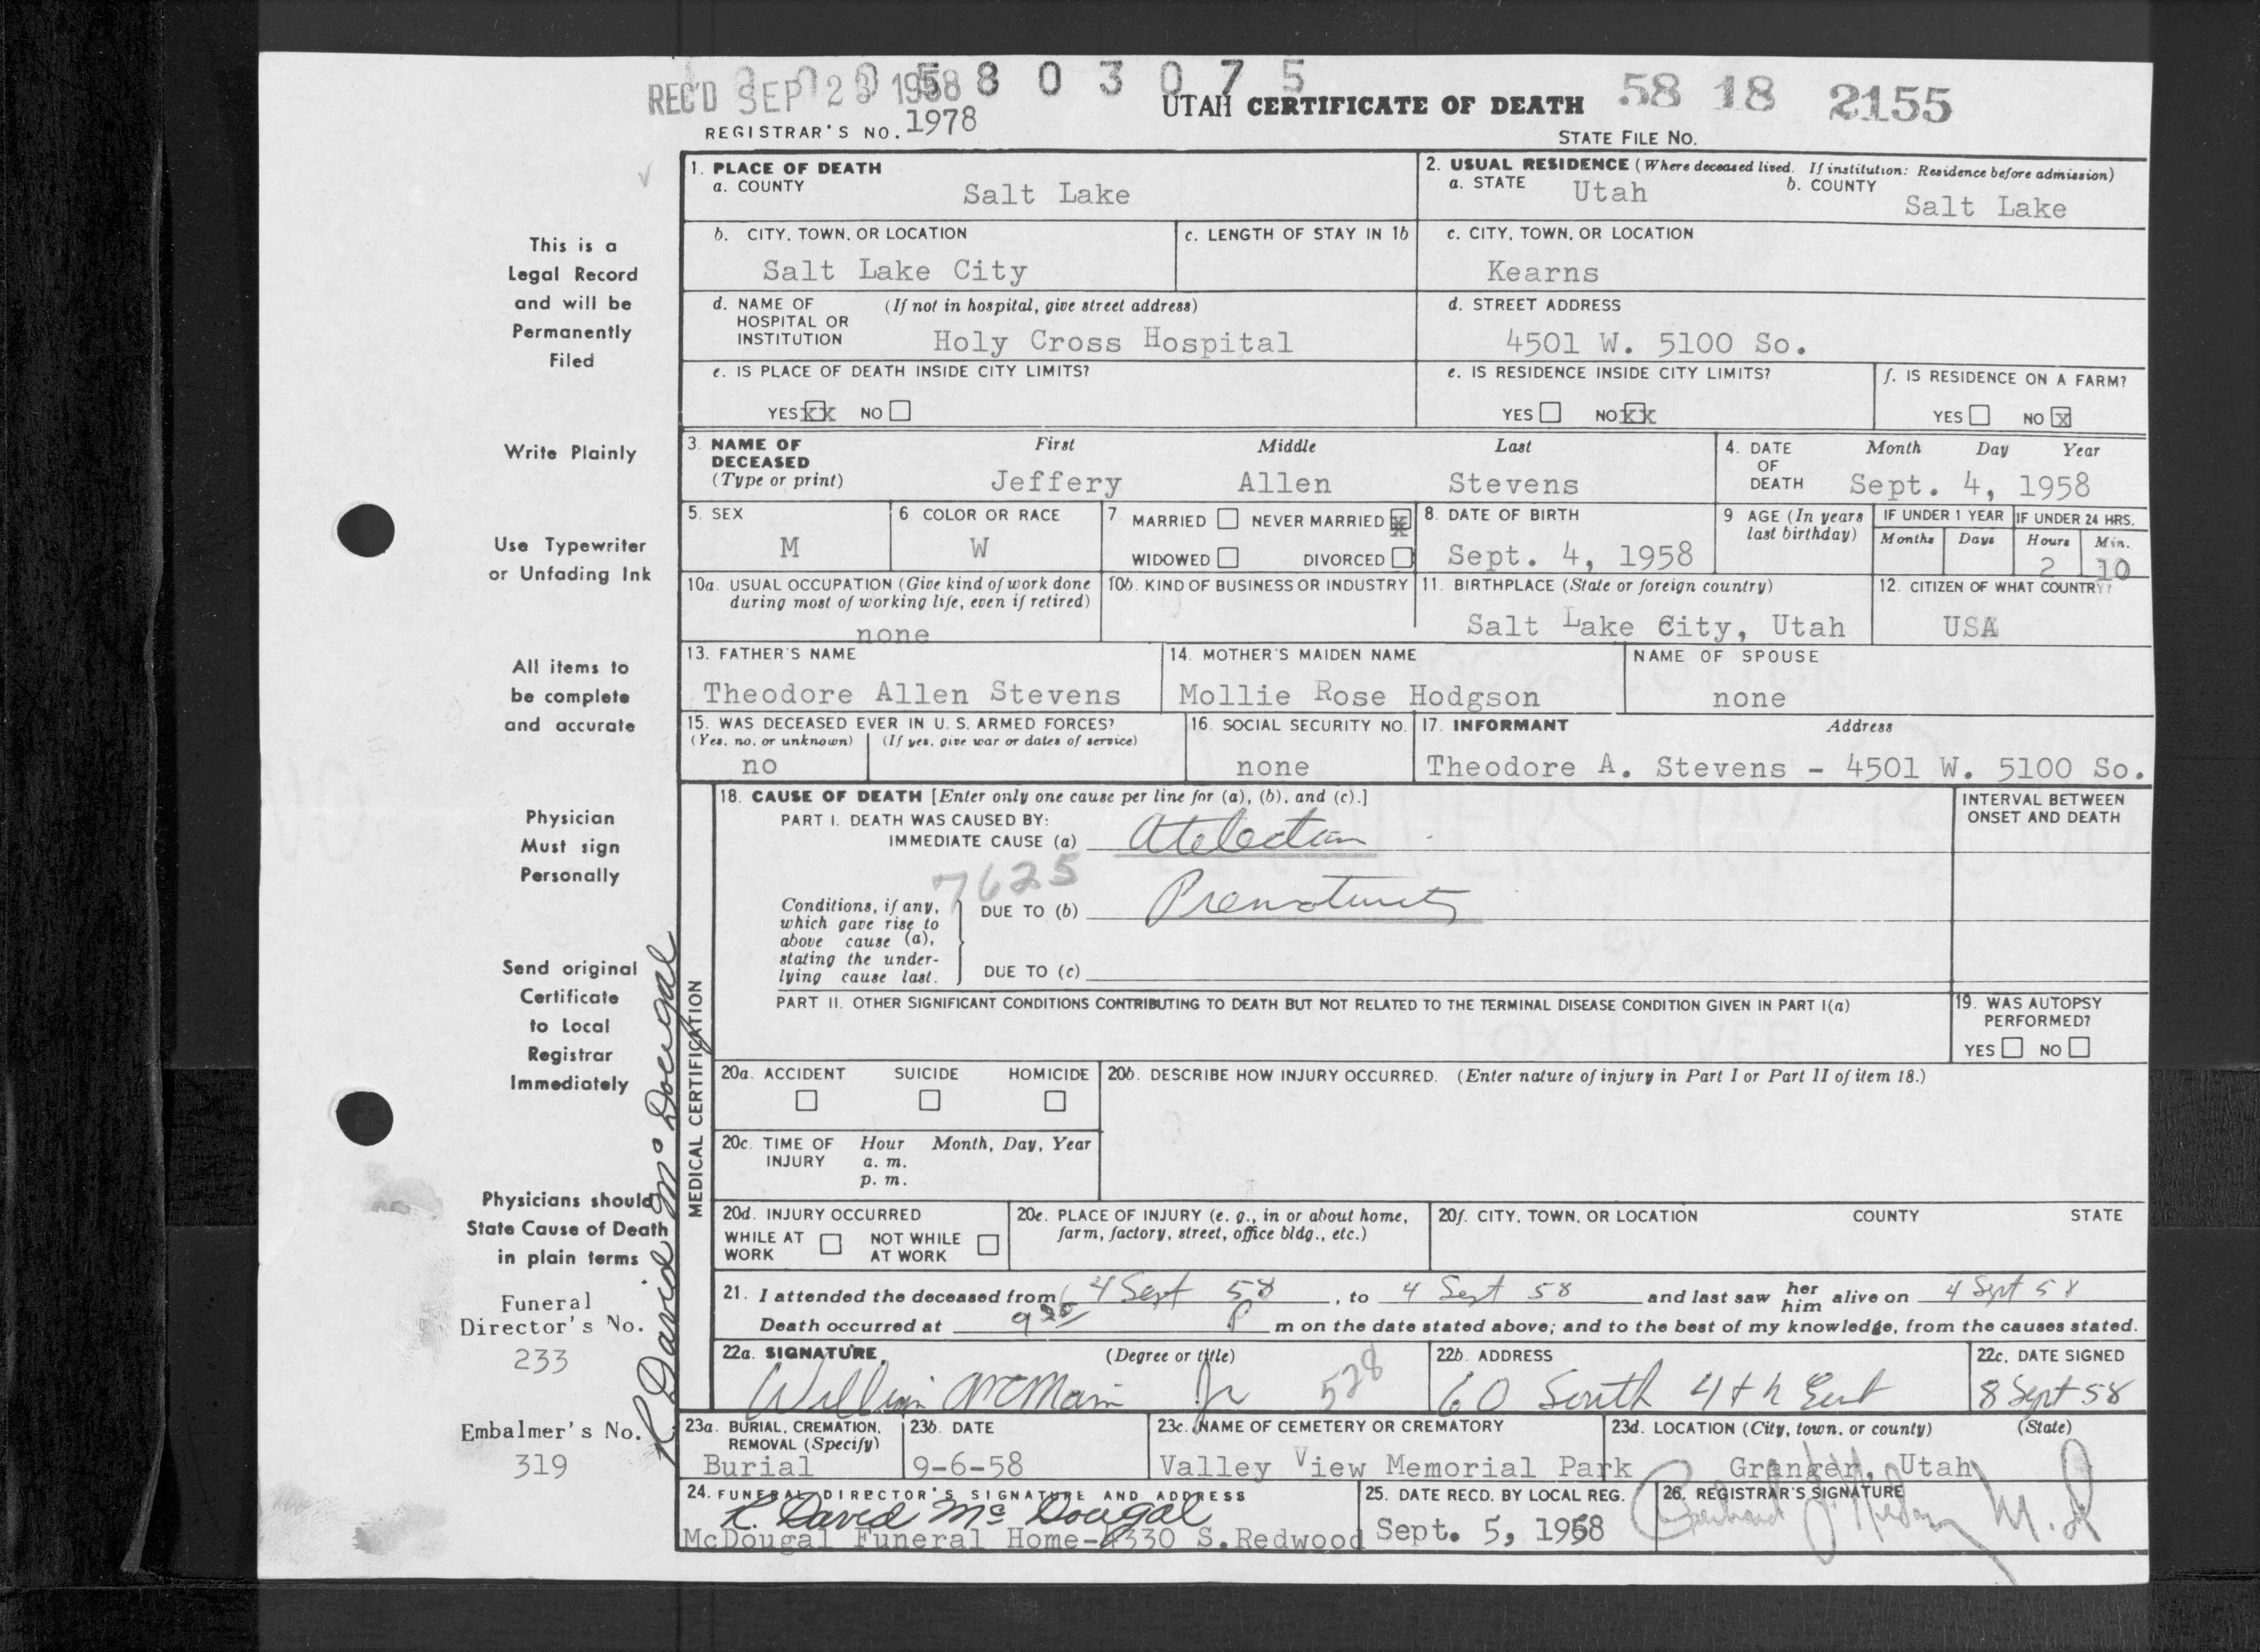 REC'D SEP 23 1958
0 5 8 0 3 0 7 5
UTAH CERTIFICATE OF DEATH 58 18 2155
REGISTRAR'S NO. 1978
STATE FILE NO.
1. PLACE OF DEATH
a. COUNTY Salt Lake
2. USUAL RESIDENCE (Where deceased lived. If institution: Residence before admission)
a. STATE Utah b. COUNTY Salt Lake
b. CITY, TOWN, OR LOCATION
Salt Lake City
c. LENGTH OF STAY IN 1b
c. CITY, TOWN, OR LOCATION
Kearns
d. NAME OF HOSPITAL OR INSTITUTION (If not in hospital, give street address)
Holy Cross Hospital
d. STREET ADDRESS
4501 W. 5100 So.
e. IS PLACE OF DEATH INSIDE CITY LIMITS?
YES XX NO
e. IS RESIDENCE INSIDE CITY LIMITS?
YES NO XX
f. IS RESIDENCE ON A FARM?
YES NO X
3. NAME OF DECEASED (Type or print) First Middle Last
Jeffery Allen Stevens
4. DATE OF DEATH Month Day Year
Sept. 4, 1958
5. SEX
M
6. COLOR OR RACE
W
7. MARRIED NEVER MARRIED X
WIDOWED DIVORCED
8. DATE OF BIRTH
Sept. 4, 1958
9 AGE (In years last birthday)
IF UNDER 1 YEAR IF UNDER 24 HRS.
Months Days Hours Min.
2 10
10a. USUAL OCCUPATION (Give kind of work done during most of working life, even if retired)
none
10b. KIND OF BUSINESS OR INDUSTRY
11. BIRTHPLACE (State or foreign country)
Salt Lake City, Utah
12. CITIZEN OF WHAT COUNTRY?
USA
13. FATHER'S NAME
Theodore Allen Stevens
14. MOTHER'S MAIDEN NAME
Mollie Rose Hodgson
NAME OF SPOUSE
none
15. WAS DECEASED EVER IN U. S. ARMED FORCES?
(Yes, no, or unknown) (If yes, give war or dates of service)
no
16. SOCIAL SECURITY NO.
none
17. INFORMANT Address
Theodore A. Stevens - 4501 W. 5100 So.
MEDICAL CERTIFICATION
18. CAUSE OF DEATH [Enter only one cause per line for (a), (b), and (c).]
INTERVAL BETWEEN ONSET AND DEATH
PART I. DEATH WAS CAUSED BY:
IMMEDIATE CAUSE (a)
7625
Conditions, if any, which gave rise to above cause (a), stating the underlying cause last.
DUE TO (b) Prematurity
DUE TO (c)
PART II. OTHER SIGNIFICANT CONDITIONS CONTRIBUTING TO DEATH BUT NOT RELATED TO THE TERMINAL DISEASE CONDITION GIVEN IN PART I(a)
19. WAS AUTOPSY PERFORMED?
YES NO
20a. ACCIDENT SUICIDE HOMICIDE
20b. DESCRIBE HOW INJURY OCCURRED. (Enter nature of injury in Part I or Part II of item 18.)
20c. TIME OF INJURY Hour Month, Day, Year
a. m.
p. m.
20d. INJURY OCCURRED
WHILE AT WORK NOT WHILE AT WORK
20e. PLACE OF INJURY (e. g., in or about home, farm, factory, street, office bldg., etc.)
20f. CITY, TOWN, OR LOCATION COUNTY STATE
21. I attended the deceased from 4 Sept 58, to 4 Sept 58 and last saw her him alive on 4 Sept 58
Death occurred at P m on the date stated above; and to the best of my knowledge, from the causes stated.
22a. SIGNATURE (Degree or title)
William Jr 528
22b. ADDRESS
60 South 4th East
22c. DATE SIGNED
8 Sept 58
23a. BURIAL, CREMATION, REMOVAL (Specify)
Burial
23b. DATE
9-6-58
23c. NAME OF CEMETERY OR CREMATORY
Valley View Memorial Park
23d. LOCATION (City, town, or county) (State)
Granger, Utah
24. FUNERAL DIRECTOR'S SIGNATURE AND ADDRESS
R. David McDougal
McDougal Funeral Home-4330 S.Redwood
25. DATE RECD. BY LOCAL REG.
Sept. 5, 1958
26. REGISTRAR'S SIGNATURE
M.D.
This is a
Legal Record
and will be
Permanently
Filed
Write Plainly
Use Typewriter
or Unfading Ink
All items to
be complete
and accurate
Physician
Must sign
Personally
Send original
Certificate
to Local
Registrar
Immediately
Physicians should
State Cause of Death
in plain terms
Funeral
Director's No.
233
Embalmer's No.
319
R. David McDougal